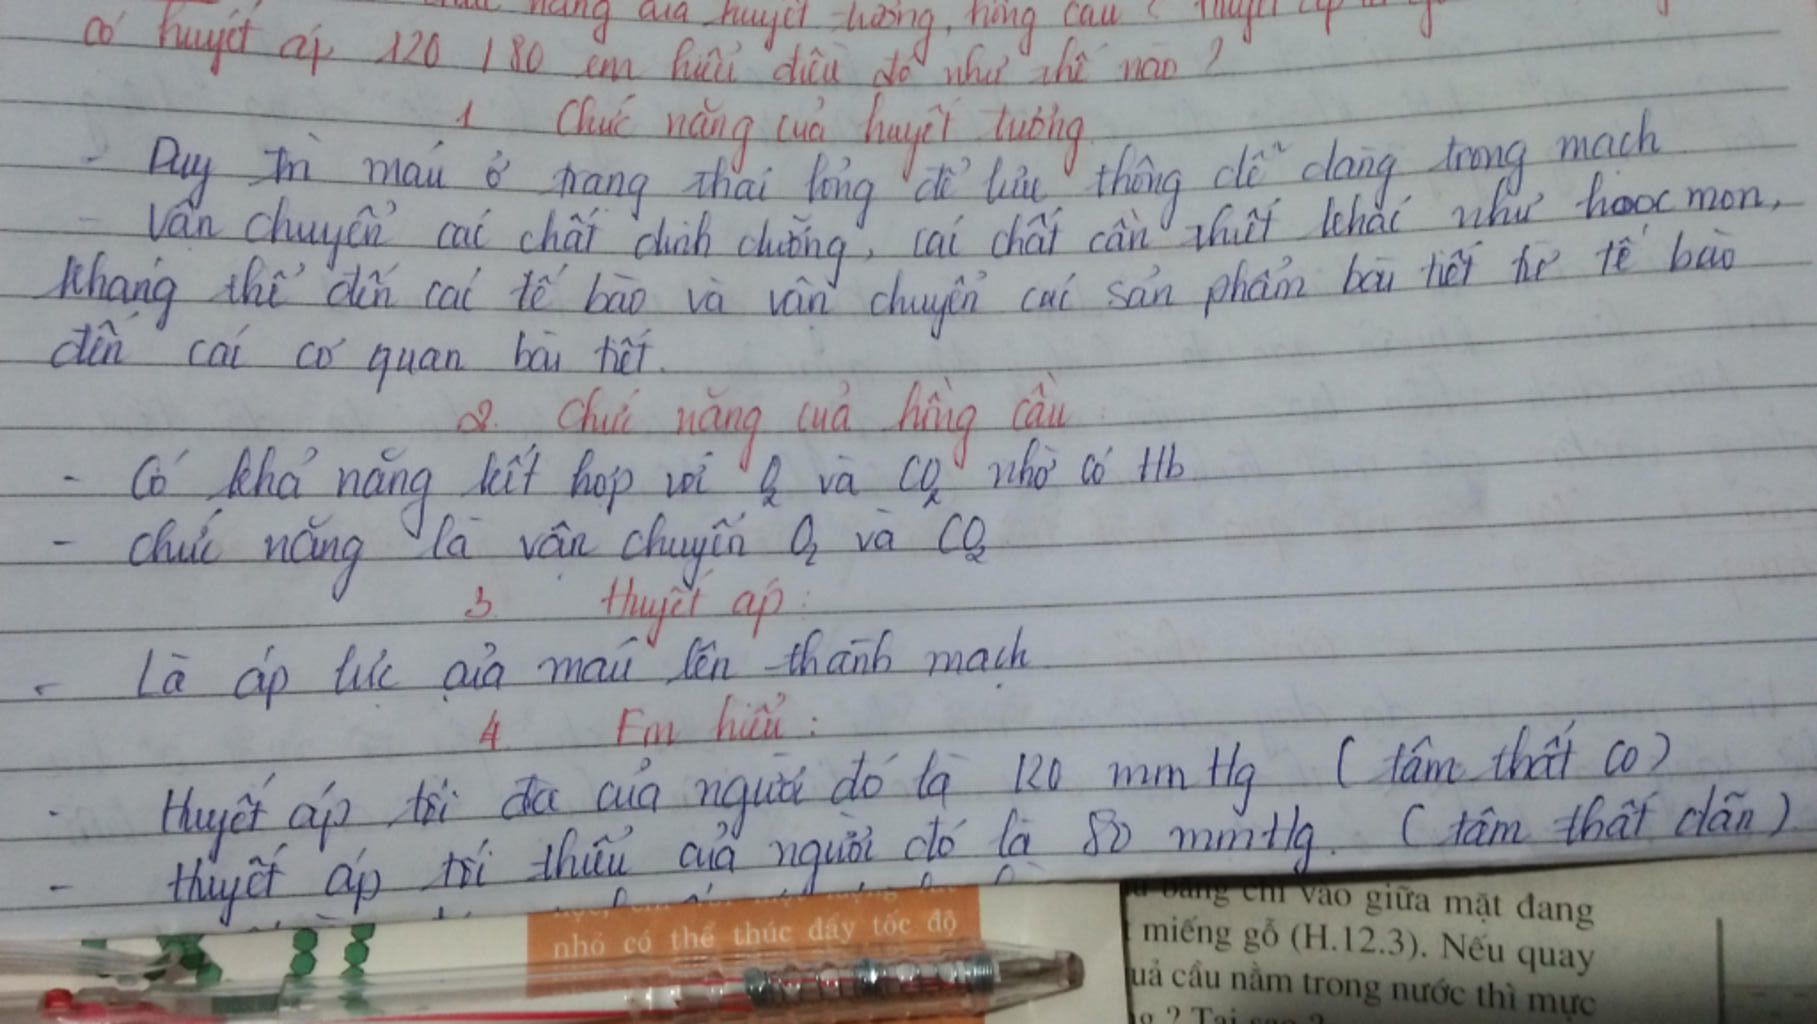 năng của huyết tương, hồng cầu ? Huyết áp
có huyết áp 120 / 80 em hiểu điều đó như thế nào ?
1 Chức năng của huyết tương
- Duy trì máu ở trạng thái lỏng để lưu thông dễ dàng trong mạch
- Vận chuyển các chất dinh dưỡng, các chất cần thiết khác như hoocmon,
kháng thể đến các tế bào và vận chuyển các sản phẩm bài tiết từ tế bào
đến các cơ quan bài tiết.
2. Chức năng của hồng cầu :
- Có khả năng kết hợp với O2 và CO2 nhờ có Hb
- chức năng là vận chuyển O2 và CO2
3 Huyết áp :
- Là áp lực của máu lên thành mạch
4 Em hiểu :
- Huyết áp tối đa của người đó là 120 mmHg ( tâm thất co )
- Huyết áp tối thiểu của người đó là 80 mmHg. ( tâm thất dãn )
nhỏ có thể thúc đẩy tốc độ
bằng chì vào giữa mặt đang
miếng gỗ (H.12.3). Nếu quay
quả cầu nằm trong nước thì mực
? Tại sao ?